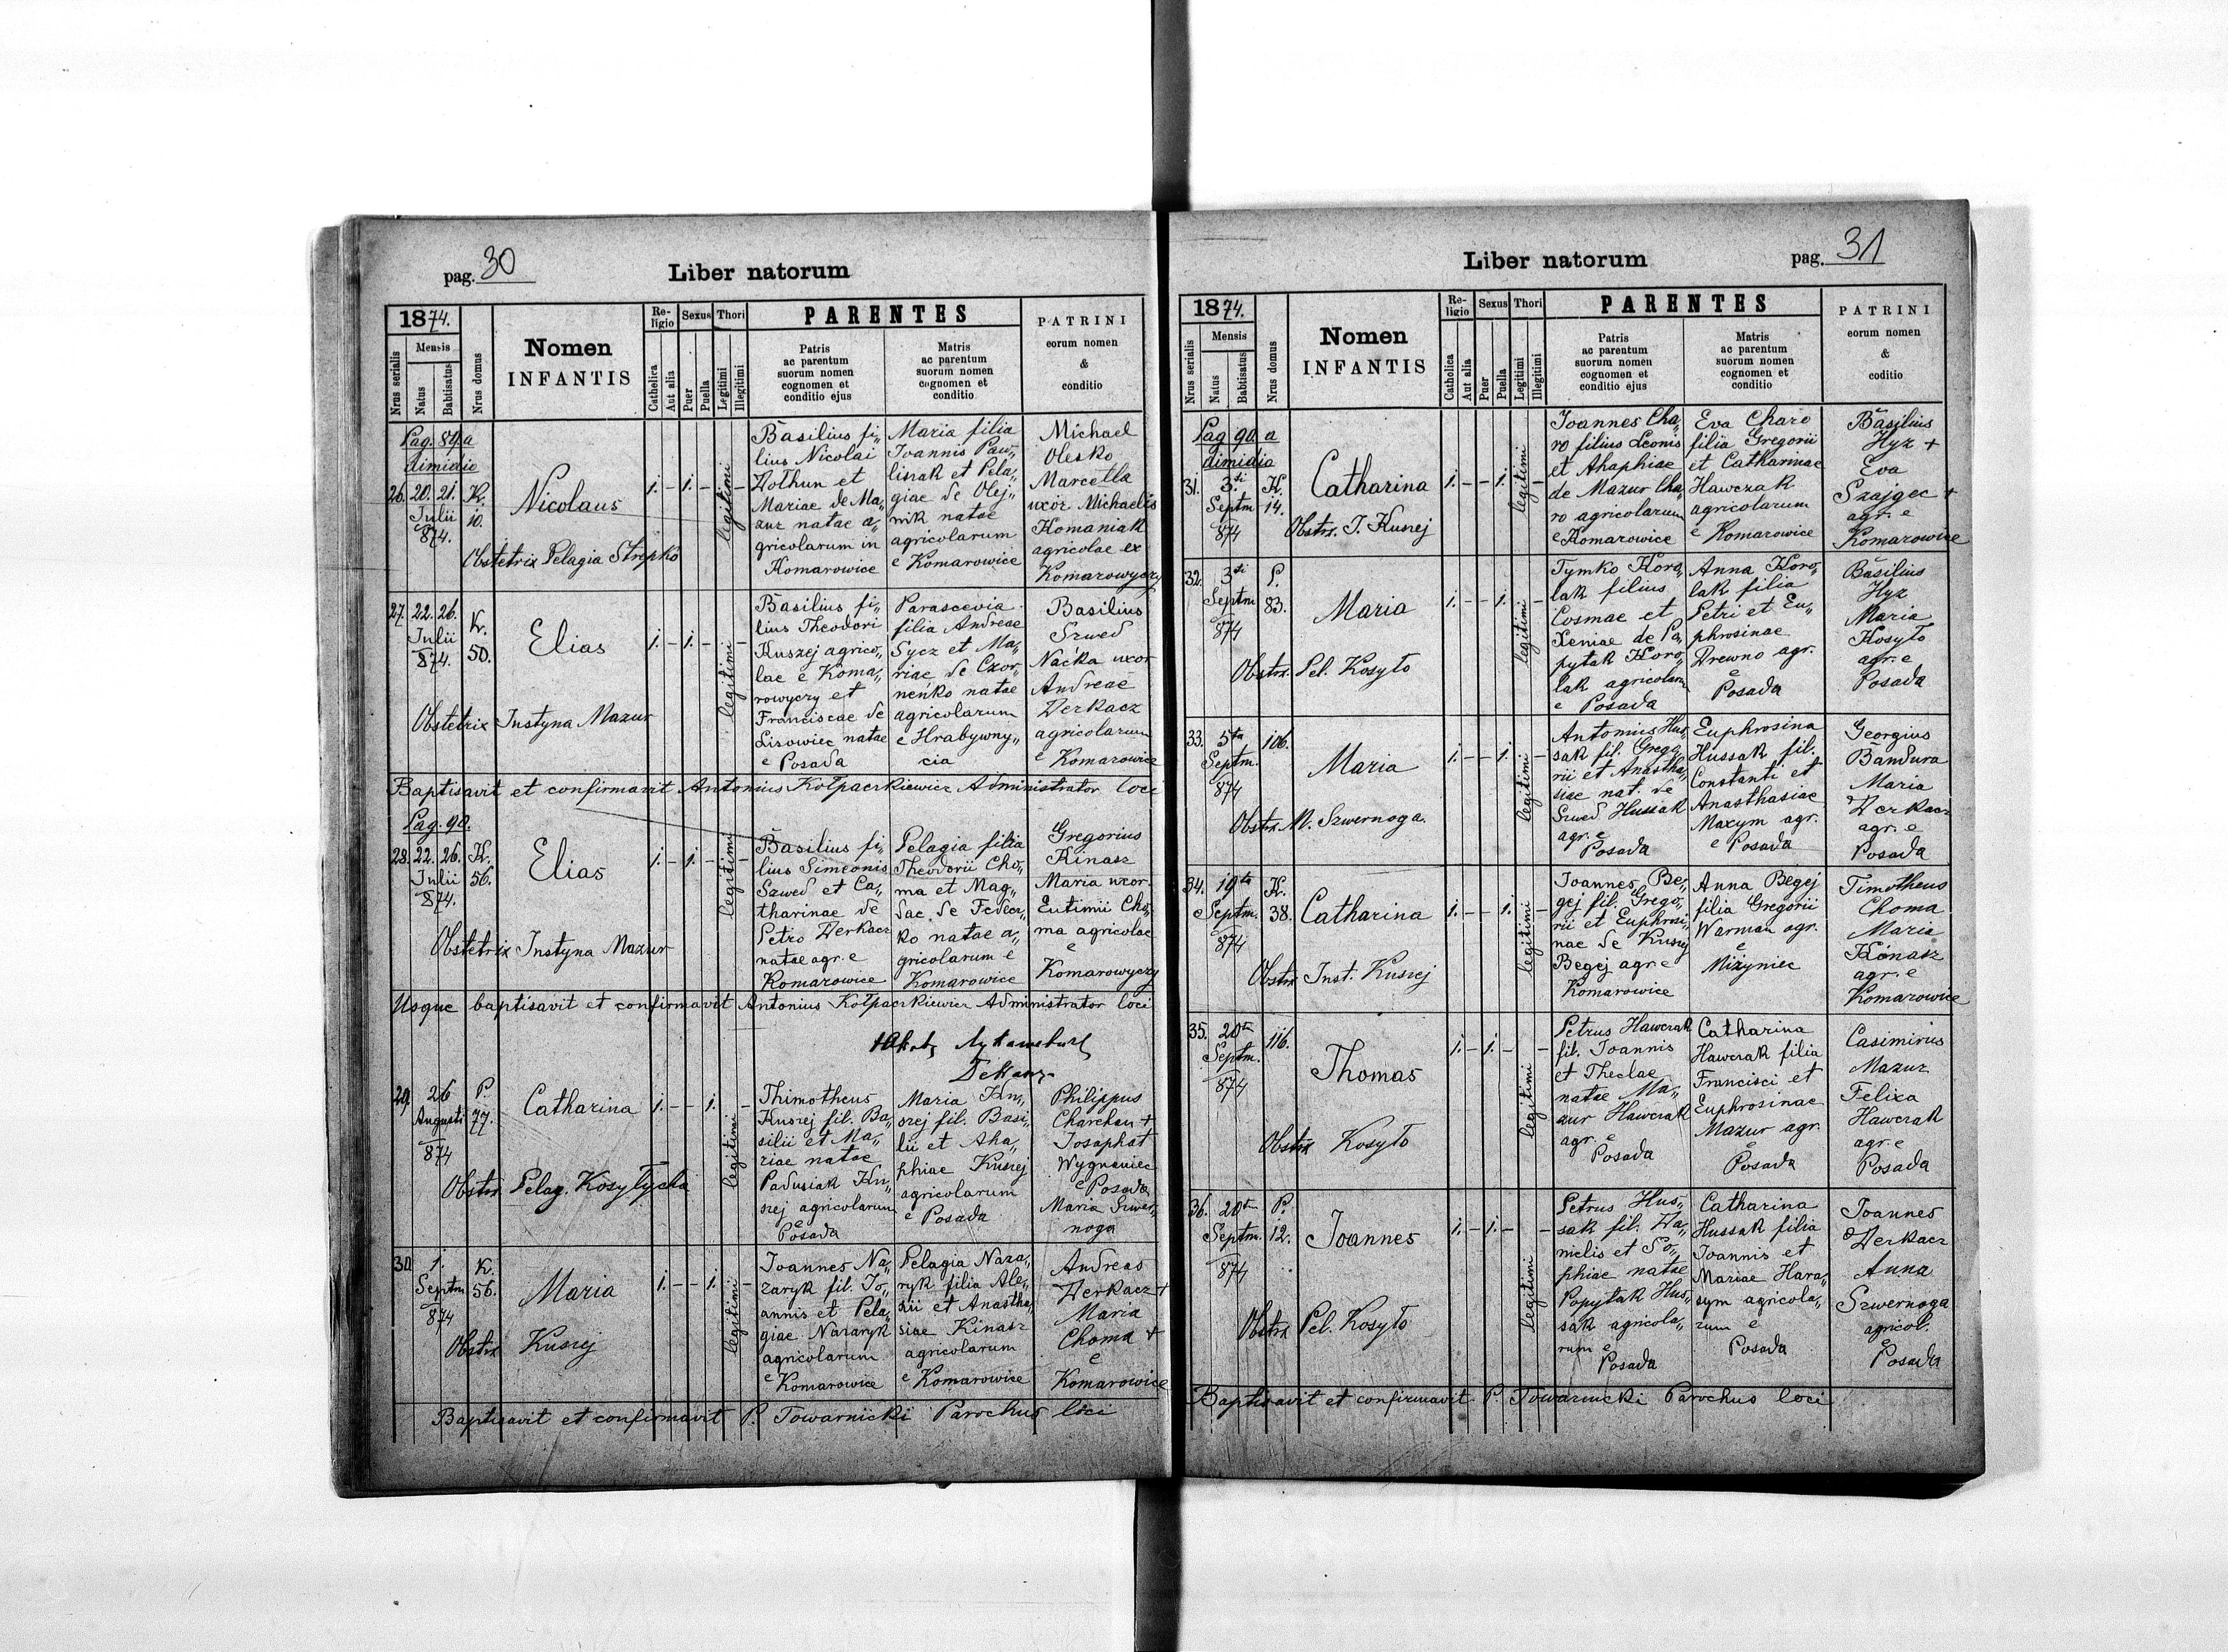 pag. 30
Liber natorum
1874.
Mensis
Nrus serialis
Natus
Babtisatus
Nrus domus
Nomen
INFANTIS
Religio
Catholica
Aut alia
Sexus
Puer
Puella
Thori
Legitimi
Illegitimi
PARENTES
Patris
ac parentum
suorum nomen
cognomen et
conditio ejus
Matris
ac parentum
suorum nomen
cognomen et
conditio
PATRINI
eorum nomen
&
conditio
Pag. 89 a
dimidio
26. 20. 21.
Julii
874.
K.
10.
Nicolaus
1. – 1. – legitimi –
Basilius fi„
lius Nicolai
Dothun et
Mariae de Ma„
zur natae a„
gricolarum in
Komarowice
Maria filia
Joannis Paw„
lisrak et Pela„
giae de Olej„
nik natae
agricolarum
e Komarowice
Michael
Olesko
Marcella
uxor Michaelis
Komaniak
agricolae ex
Komarowyczy
Obstetrix Pelagia Strepko
27. 22. 26.
Julii
874.
K.
50.
Elias
1. – 1. – legitimi –
Basilius fi„
lius Theodori
Kuszej agrico„
lae e Koma„
rowyczy et
Franciscae de
Lisowiec natae
e Posada
Parascevia
filia Andreae
Sycz et Ma„
riae de Czor„
neńko natae
agricolarum
e Hrabywny„
cia
Basilius
Szwed
Naćka uxor
Andreae
Derkacz
agricolarum
e Komarowice
Obstetrix Justyna Mazur
Baptisavit et confirmavit Antonius Kołpaczkiewicz Administrator loci
Pag. 90.
28. 22. 26.
Julii
874.
K.
56.
Elias
1. – 1. – legitimi –
Basilius fi„
lius Simeonis
Szwed et Ca„
tharinae de
Petro Derkacz
natae agr. e
Komarowice
Pelagia filia
Theodorii Cho„
ma et Mag„
dac. de Fedecz„
ko natae a„
gricolarum e
Komarowice
Gregorius
Kinasz
Maria uxor
Eutimii Cho„
ma agricolae
e
Komarowyczy
Obstetrix Justyna Mazur
Usque baptisavit et confirmavit Antonius Kołpaczkiewicz Administrator loci
29. 26
Augusti
874
P.
77.
Catharina
1. – – 1. legitimi –
Thimotheus
Kusrej fil. Ba„
silii et Ma„
riae natae
Padusiak Ku„
srej agricolarum
e
Posada
Maria Ku„
srej fil. Basi„
lii et Aha„
phiae Kusrej
agricolarum
e Posada
Philippus
Charchan +
Josaphat
Wygnaniec
e Posada
Maria Szwer„
noga
Obstr. Pelag. Kosyłycha
30. 1.
Septm.
874
K.
56.
Maria
1. – – 1. legitimi –
Joannes Na„
zaryk fil. Jo„
annis et Pela„
giae Nazaryk
agricolarum
e Komarowice
Pelagia Naza„
ryk filia Ale„
xii et Anastha„
siae Kinasz
agricolarum
e Komarowice
Andreas
Derkacz +
Maria
Choma +
e
Komarowice
Obstrx Kusrej
Baptisavit et confirmavit P. Towarnicki Parochus loci
Liber natorum
pag. 31
1874.
Mensis
Nrus serialis
Natus
Babtisatus
Nrus domus
Nomen
INFANTIS
Religio
Catholica
Aut alia
Sexus
Puer
Puella
Thori
Legitimi
Illegitimi
PARENTES
Patris
ac parentum
suorum nomen
cognomen et
conditio ejus
Matris
ac parentum
suorum nomen
cognomen et
conditio
PATRINI
eorum nomen
&
coditio
Pag. 90. a
dimidia
31. 3ti
Septm
874
K.
14.
Catharina
1. – – 1. legitimi –
Joannes Cha„
ro filius Leonis
et Ahaphiae
de Mazur Cha„
ro agricolarum
e Komarowice
Eva Charo
filia Gregorii
et Catharinae
Hawczak
agricolarum
e Komarowice
Basilius
Hyz +
Eva
Szajgec +
agr. e
Komarowice
Obstrx. J. Kusrej
32. 3ti
Septm
874
P.
83.
Maria
1. – – 1. legitimi –
Tymko Koro„
lak filius
Cosmae et
Xeniae de Po„
pytak Koro„
lak agricolarum
e Posada
Anna Koro„
lak filia
Petri et Eu„
phrosinae
Drewno agr.
e
Posada
Basilius
Hyz
Maria
Kosyło
agr. e
Posada
Obstrx. Pel. Kosyło
33. 5ta
Septm.
874
106.
Maria
1. – – 1. legitimi –
Antonius Hus„
sak fil. Grego„
rii et Anastha„
siae nat. de
Szwed Hussak
agr. e
Posada
Euphrosina
Hussak fil.
Constanti et
Anasthasiae
Maxym agr.
e Posada
Georgius
Bandura
Maria
Derkacz
agr. e
Posada
Obstrx. M. Szwernoga.
34. 19ta
Septm.
874
K.
38.
Catharina
1. – – 1. legitimi –
Joannes Be„
gej fil. Grego„
rii et Euphrosi„
nae de Kusrej
Begej agr. e
Komarowice
Anna Begej
filia Gregorii
Warman agr.
e
Miżyniec
Timotheus
Choma
Maria
Konasz
agr. e
Komarowice
Obstrx Just. Kusrej
35. 20ta
Septm.
874
116.
Thomas
1. – 1. – legitimi –
Petrus Hawczak
fil. Joannis
et Theclae
natae Ma„
zur Hawczak
agr. e
Posada
Catharina
Hawczak filia
Francisci et
Euphrosinae
Mazur agr.
e
Posada
Casimirus
Mazur
Felixa
Hawczak
agr. e
Posada
Obstrx Kosyło
36. 20ta
Septm.
874
P.
12.
Joannes
1. – 1. – legitimi –
Petrus Hus„
sak fil. Da„
nielis et So„
phiae natae
Popytak Hus„
sak agricola„
rum e
Posada
Catharina
Hussak filia
Joannis et
Mariae Hara„
sym agricola„
rum e
Posada
Joannes
Derkacz
Anna
Szwernoga
agricol.
e
Posada
Obstrx Pel. Kosyło
Baptisavit et confirmavit P. Towarnicki Parochus loci